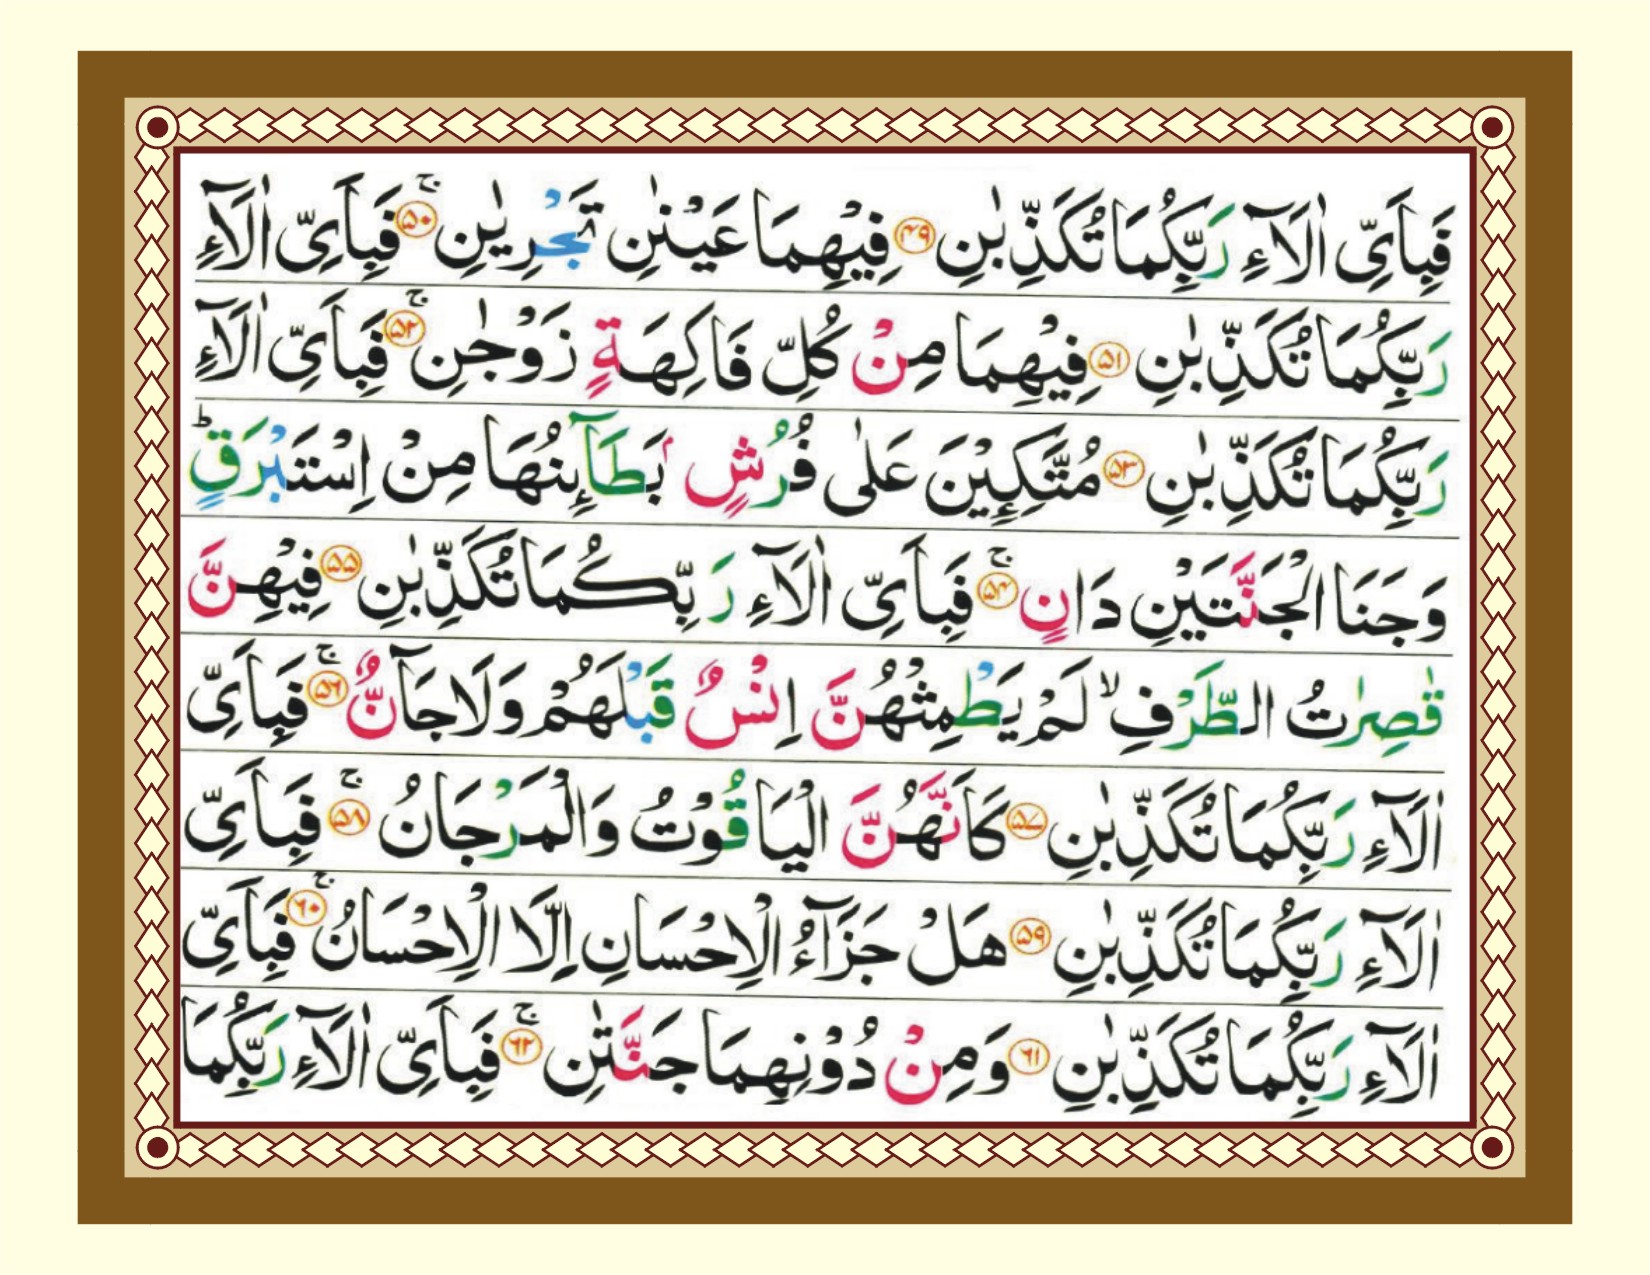 فَبِاَیِّ اٰلَآءِ رَبِّكُمَا تُكَذِّبٰنِ ﴿۴۹﴾ فِیْهِمَا عَیْنٰنِ تَجْرِیٰنِ ۚ﴿۵۰﴾ فَبِاَیِّ اٰلَآءِ
رَبِّكُمَا تُكَذِّبٰنِ ﴿۵۱﴾ فِیْهِمَا مِنْ كُلِّ فَاكِهَةٍ زَوْجٰنِ ۚ﴿۵۲﴾ فَبِاَیِّ اٰلَآءِ
رَبِّكُمَا تُكَذِّبٰنِ ﴿۵۳﴾ مُتَّكِـِٕیْنَ عَلٰی فُرُشٍۭ بَطَآىِٕنُهَا مِنْ اِسْتَبْرَقٍ ؕ
وَ جَنَا الْجَنَّتَیْنِ دَانٍ ۚ﴿۵۴﴾ فَبِاَیِّ اٰلَآءِ رَبِّكُمَا تُكَذِّبٰنِ ﴿۵۵﴾ فِیْهِنَّ
قٰصِرٰتُ الطَّرْفِ ۙ لَمْ یَطْمِثْهُنَّ اِنْسٌ قَبْلَهُمْ وَ لَا جَآنٌّ ۚ﴿۵۶﴾ فَبِاَیِّ
اٰلَآءِ رَبِّكُمَا تُكَذِّبٰنِ ﴿۵۷﴾ كَاَنَّهُنَّ الْیَاقُوْتُ وَ الْمَرْجَانُ ۚ﴿۵۸﴾ فَبِاَیِّ
اٰلَآءِ رَبِّكُمَا تُكَذِّبٰنِ ﴿۵۹﴾ هَلْ جَزَآءُ الْاِحْسَانِ اِلَّا الْاِحْسَانُ ۚ﴿۶۰﴾ فَبِاَیِّ
اٰلَآءِ رَبِّكُمَا تُكَذِّبٰنِ ﴿۶۱﴾ وَ مِنْ دُوْنِهِمَا جَنَّتٰنِ ۚ﴿۶۲﴾ فَبِاَیِّ اٰلَآءِ رَبِّكُمَا